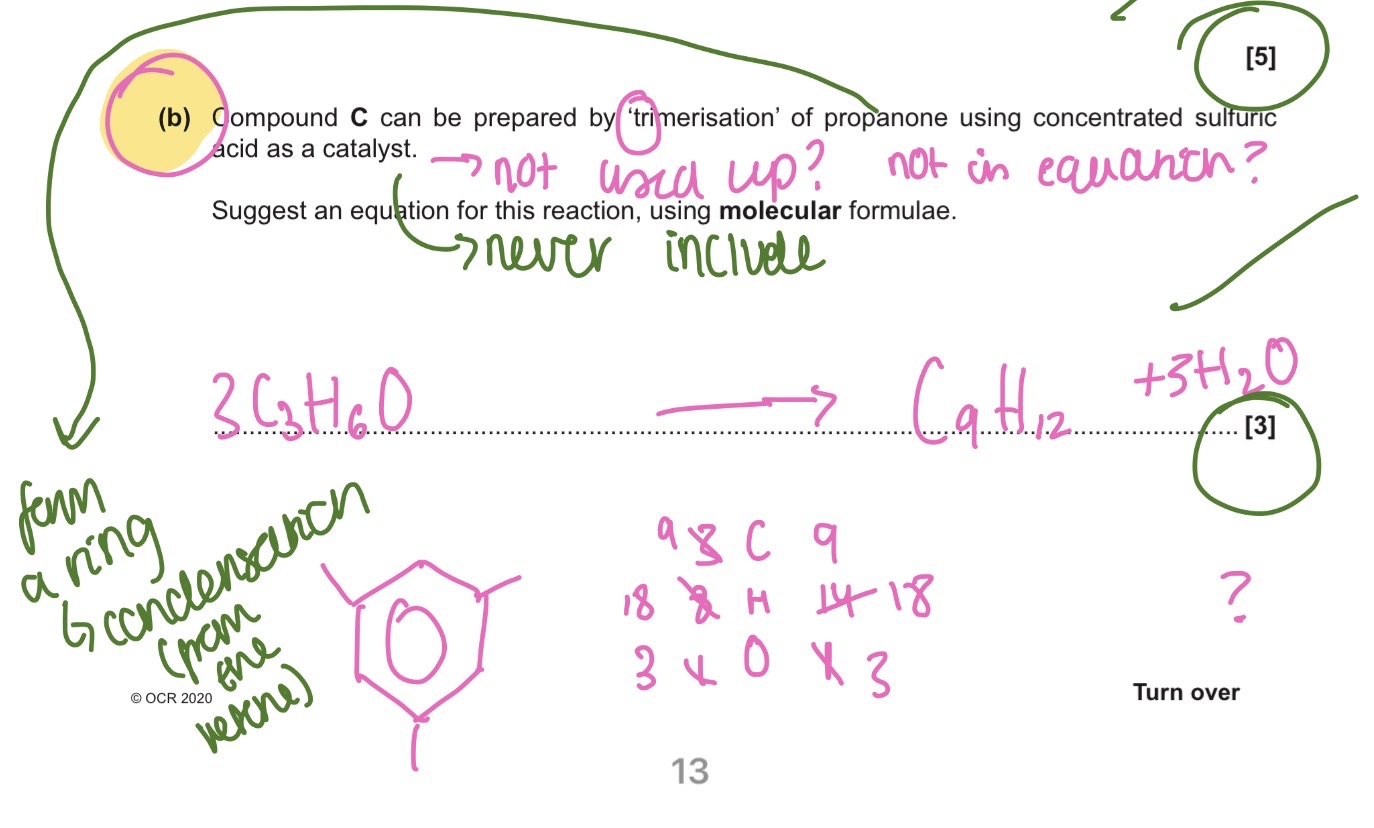 [5]
(b) Compound C can be prepared by 'trimerisation' of propanone using concentrated sulfuric
acid as a catalyst.
→ not used up? not in equation?
Suggest an equation for this reaction, using molecular formulae.
→ never include
3C₃H₆O → C₉H₁₂ +3H₂O
[3]
form
a ring
↳ condensation
(from
the
ketone)
9 8 C 9
18 8 H 14 18
3 1 O 1 3
?
© OCR 2020
Turn over
13